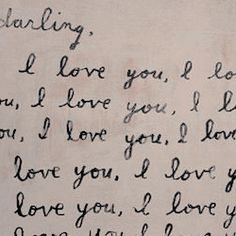 darling,
I love you, I lo
ou, I love you, I l
ou, I love you, I love
love you, I love y
love you, I love y
love you, I love y